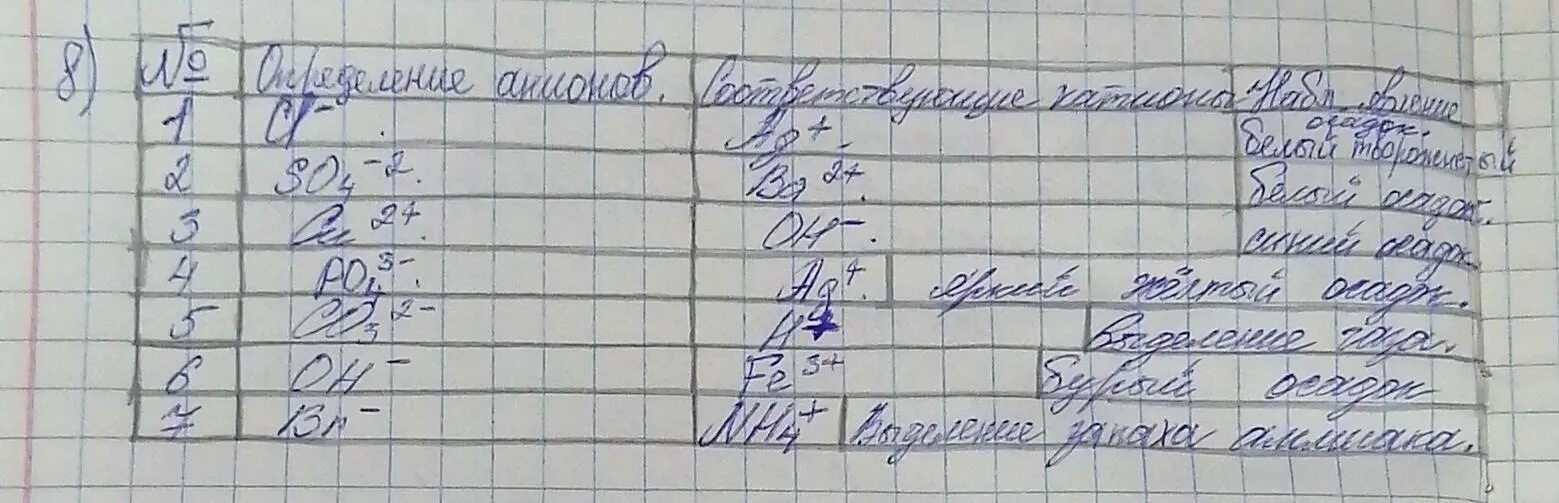 8)
№ Определение анионов. Соответствующие катионы Набл. явление
1 Cl⁻. Ag⁺. осадок. белый творожистый
2 SO₄⁻². Ba²⁺. белый осадок.
3 Cu²⁺. OH⁻. синий осадок.
4 PO₄³⁻. Ag⁺. яркий жёлтый осадок.
5 CO₃²⁻ H⁺ Выделение газа.
6 OH⁻ Fe³⁺ бурый осадок
7 Br⁻ NH₄⁺ Выделение запаха аммиака.